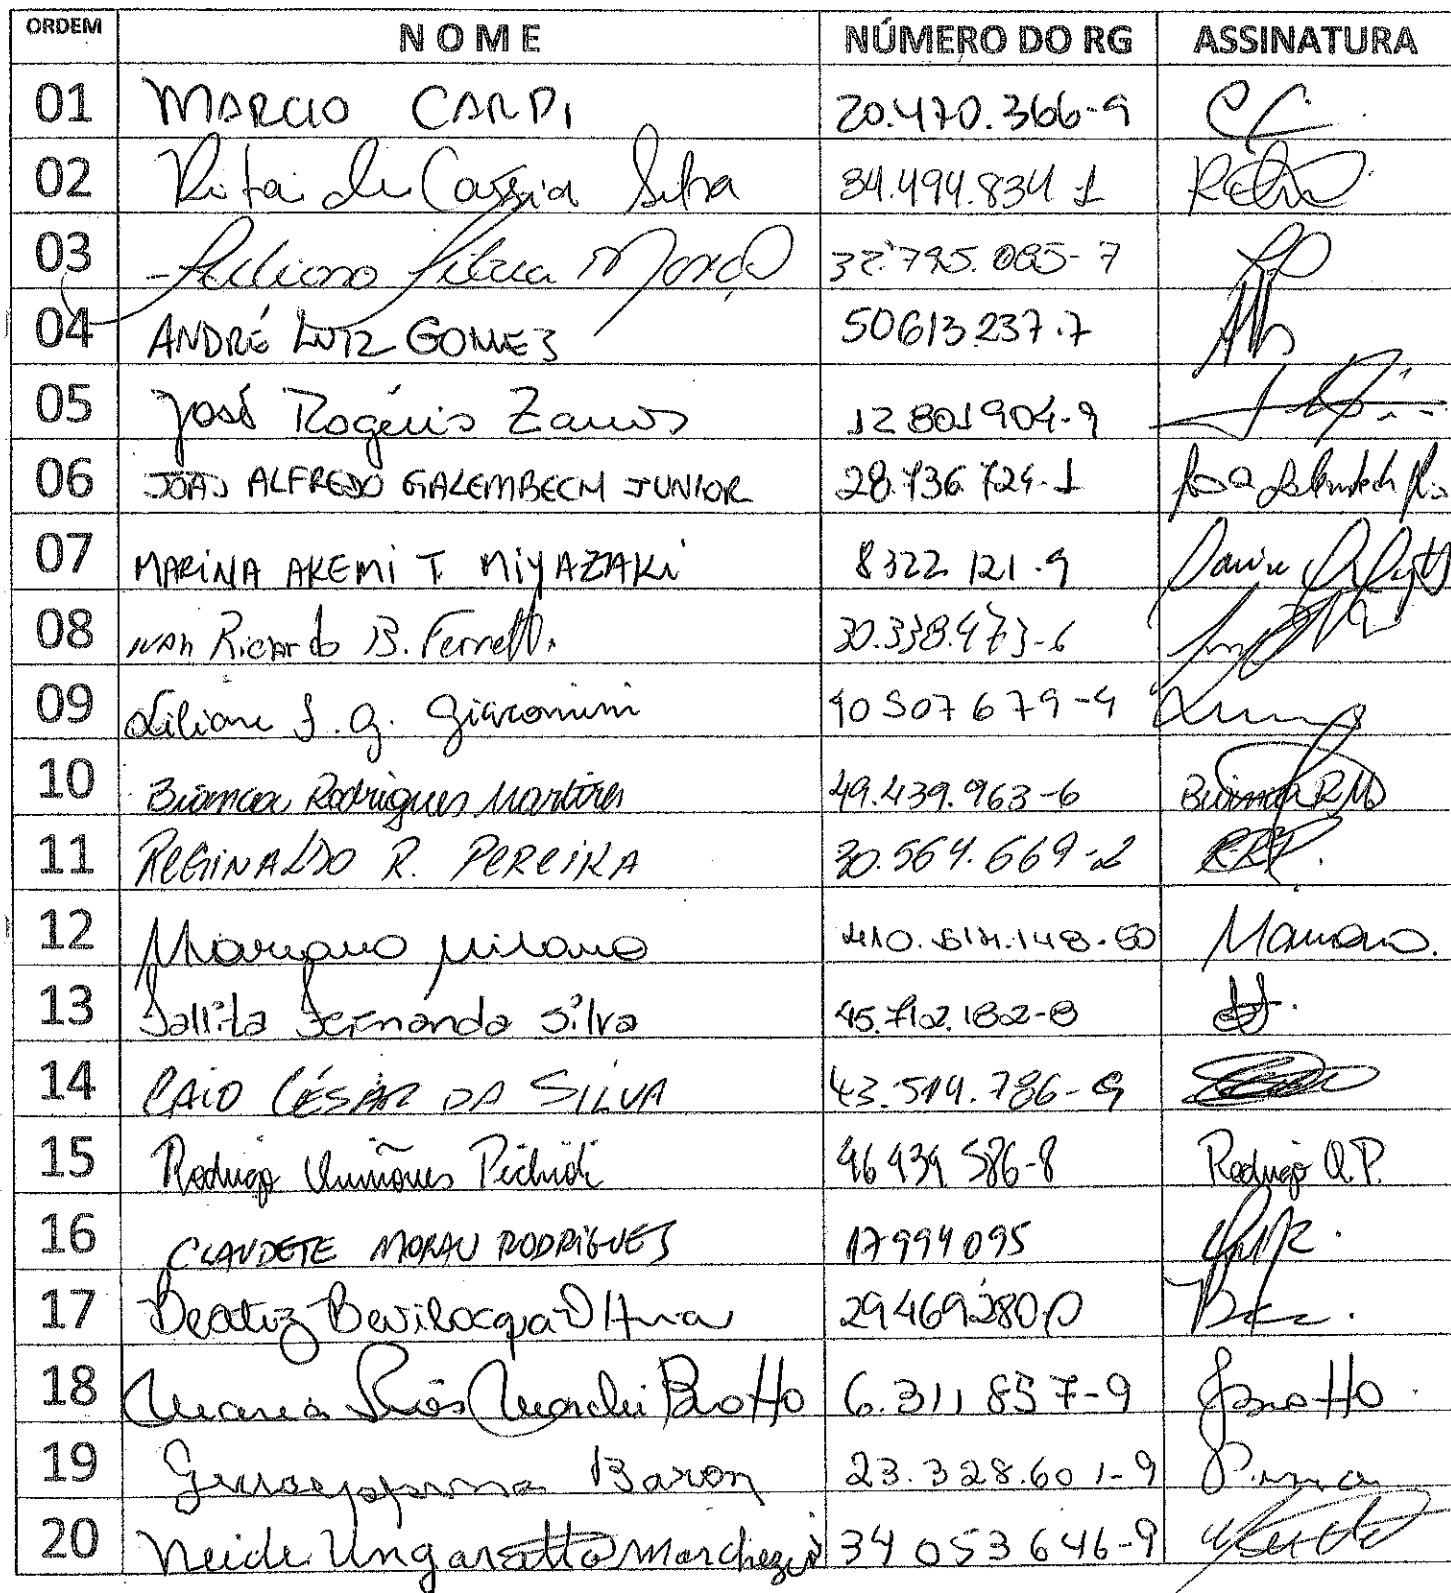 ORDEM NOME NÚMERO DO RG ASSINATURA
01 MARCIO CARDI 20.470.366-9
02 Rita de Cassia Silva 34.494.834-1
03 Silva 32.795.085-7
04 ANDRÉ LUIZ GOMES 50613237-7
05 José Rogério Zanos 12801904-9
06 JOÃO ALFREDO GALEMBECH JUNIOR 28.736.724-1
07 MARINA AKEMI T. MIYAZAKI 8322121-9
08 IVAN Ricardo B. Ferretti 30.338.473-6
09 Liliane S. G. Giacomini 40507679-4
10 Bianca Rodrigues Martins 49.439.963-6 Bianca RM
11 REGINALDO R. PEREIRA 30.564.669-2 RRP.
12 Mariano Milano Mariano.
13 Tallita Fernanda Silva 45.712.182-8
14 CAIO CÉSAR DA SILVA 43.519.786-9
15 Rodrigo 46439586-8 Rodrigo Q.P.
16 CLAUDETE MORAU RODRIGUES 17994095
17 Beatriz Bevilacqua 294692800
18 Maria Inês Marchi Biotto 6.311857-9
19 Baron 23.328.601-9
20 Neide Ungaratto Marchezin 34053646-9 Neide